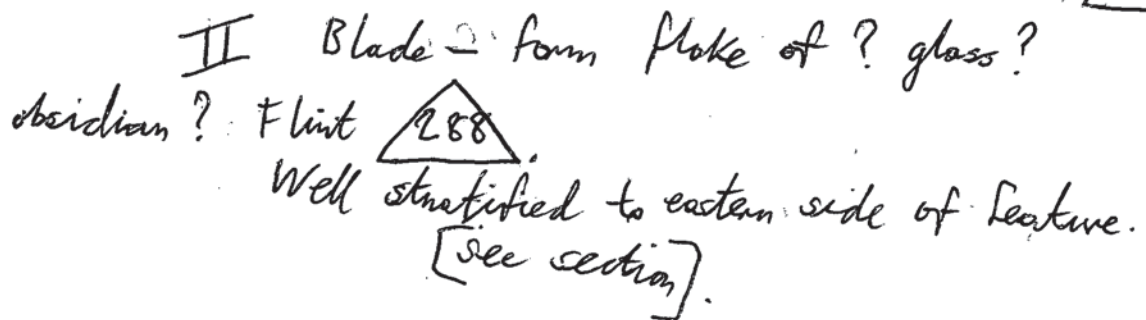 II Blade - form flake of ? glass?
obsidian? Flint 288.
Well stratified to eastern side of feature.
[see section].